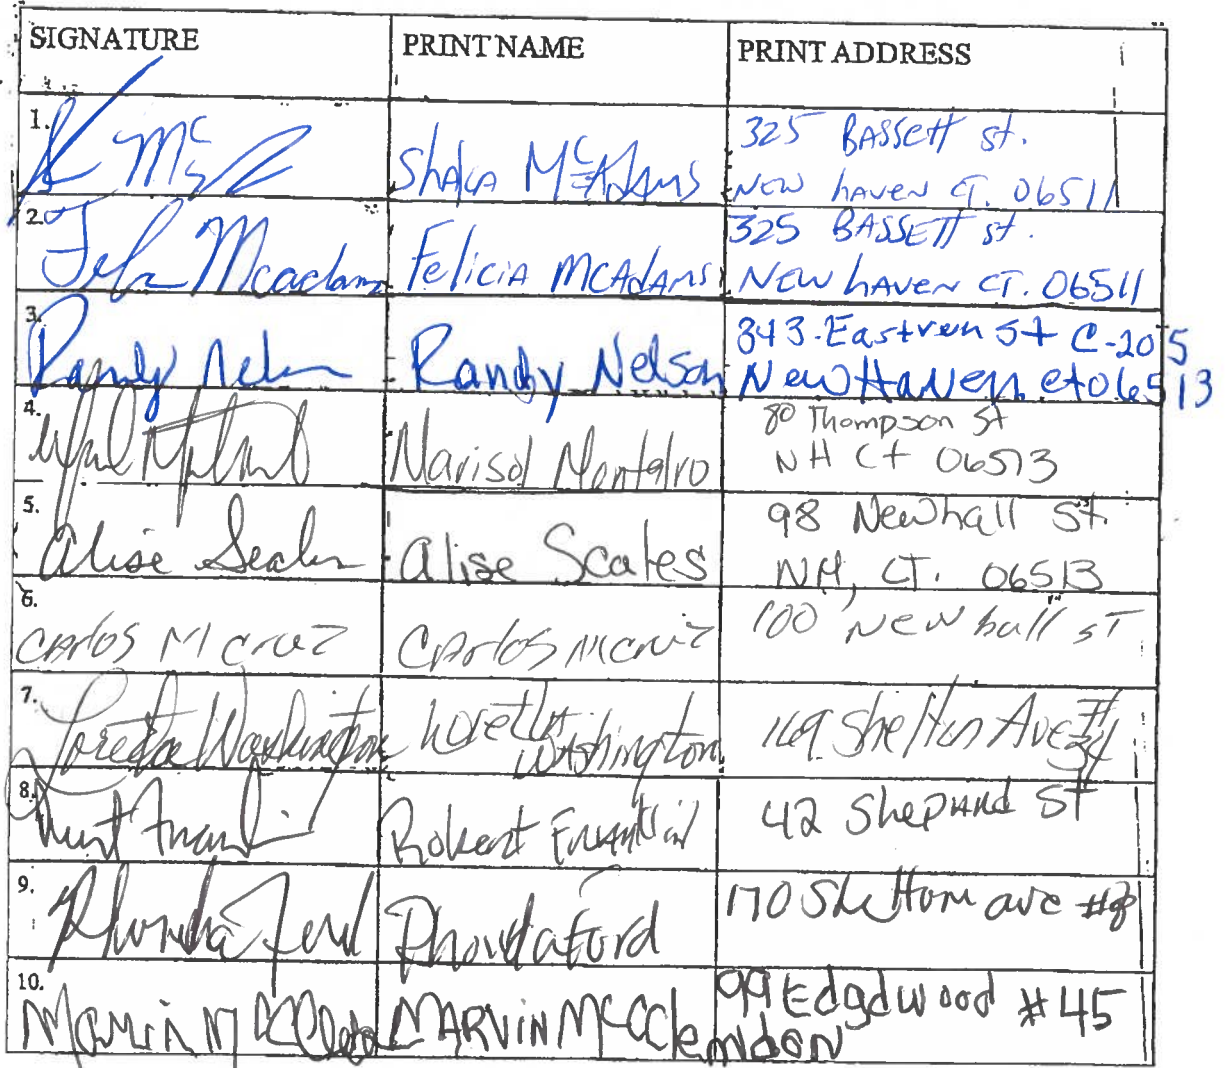 SIGNATURE PRINT NAME PRINT ADDRESS
1. Shaka McAdams 325 BASSETT St.
New haven CT. 06511
2. Mcadams Felicia McAdams 325 BASSETT St.
New haven CT. 06511
3. Randy Nelson Randy Nelson 343 Eastren St C-205
New Haven ct 06513
4. Marisol 80 Thompson St
NH Ct 06513
5. Alise Scales Alise Scales 98 Newhall St.
NH, CT. 06513
6. Carlos M Cruz Carlos M Cruz 100 Newhall ST
7. Loretta Washington Loretta Washington 169 Shelton Ave #
8. Robert Franklin 42 Shepard St
9. Rhonda Ford Rhonda Ford 170 Sheltom ave #8
10. Marvin McClendon 99 Edgdwood #45